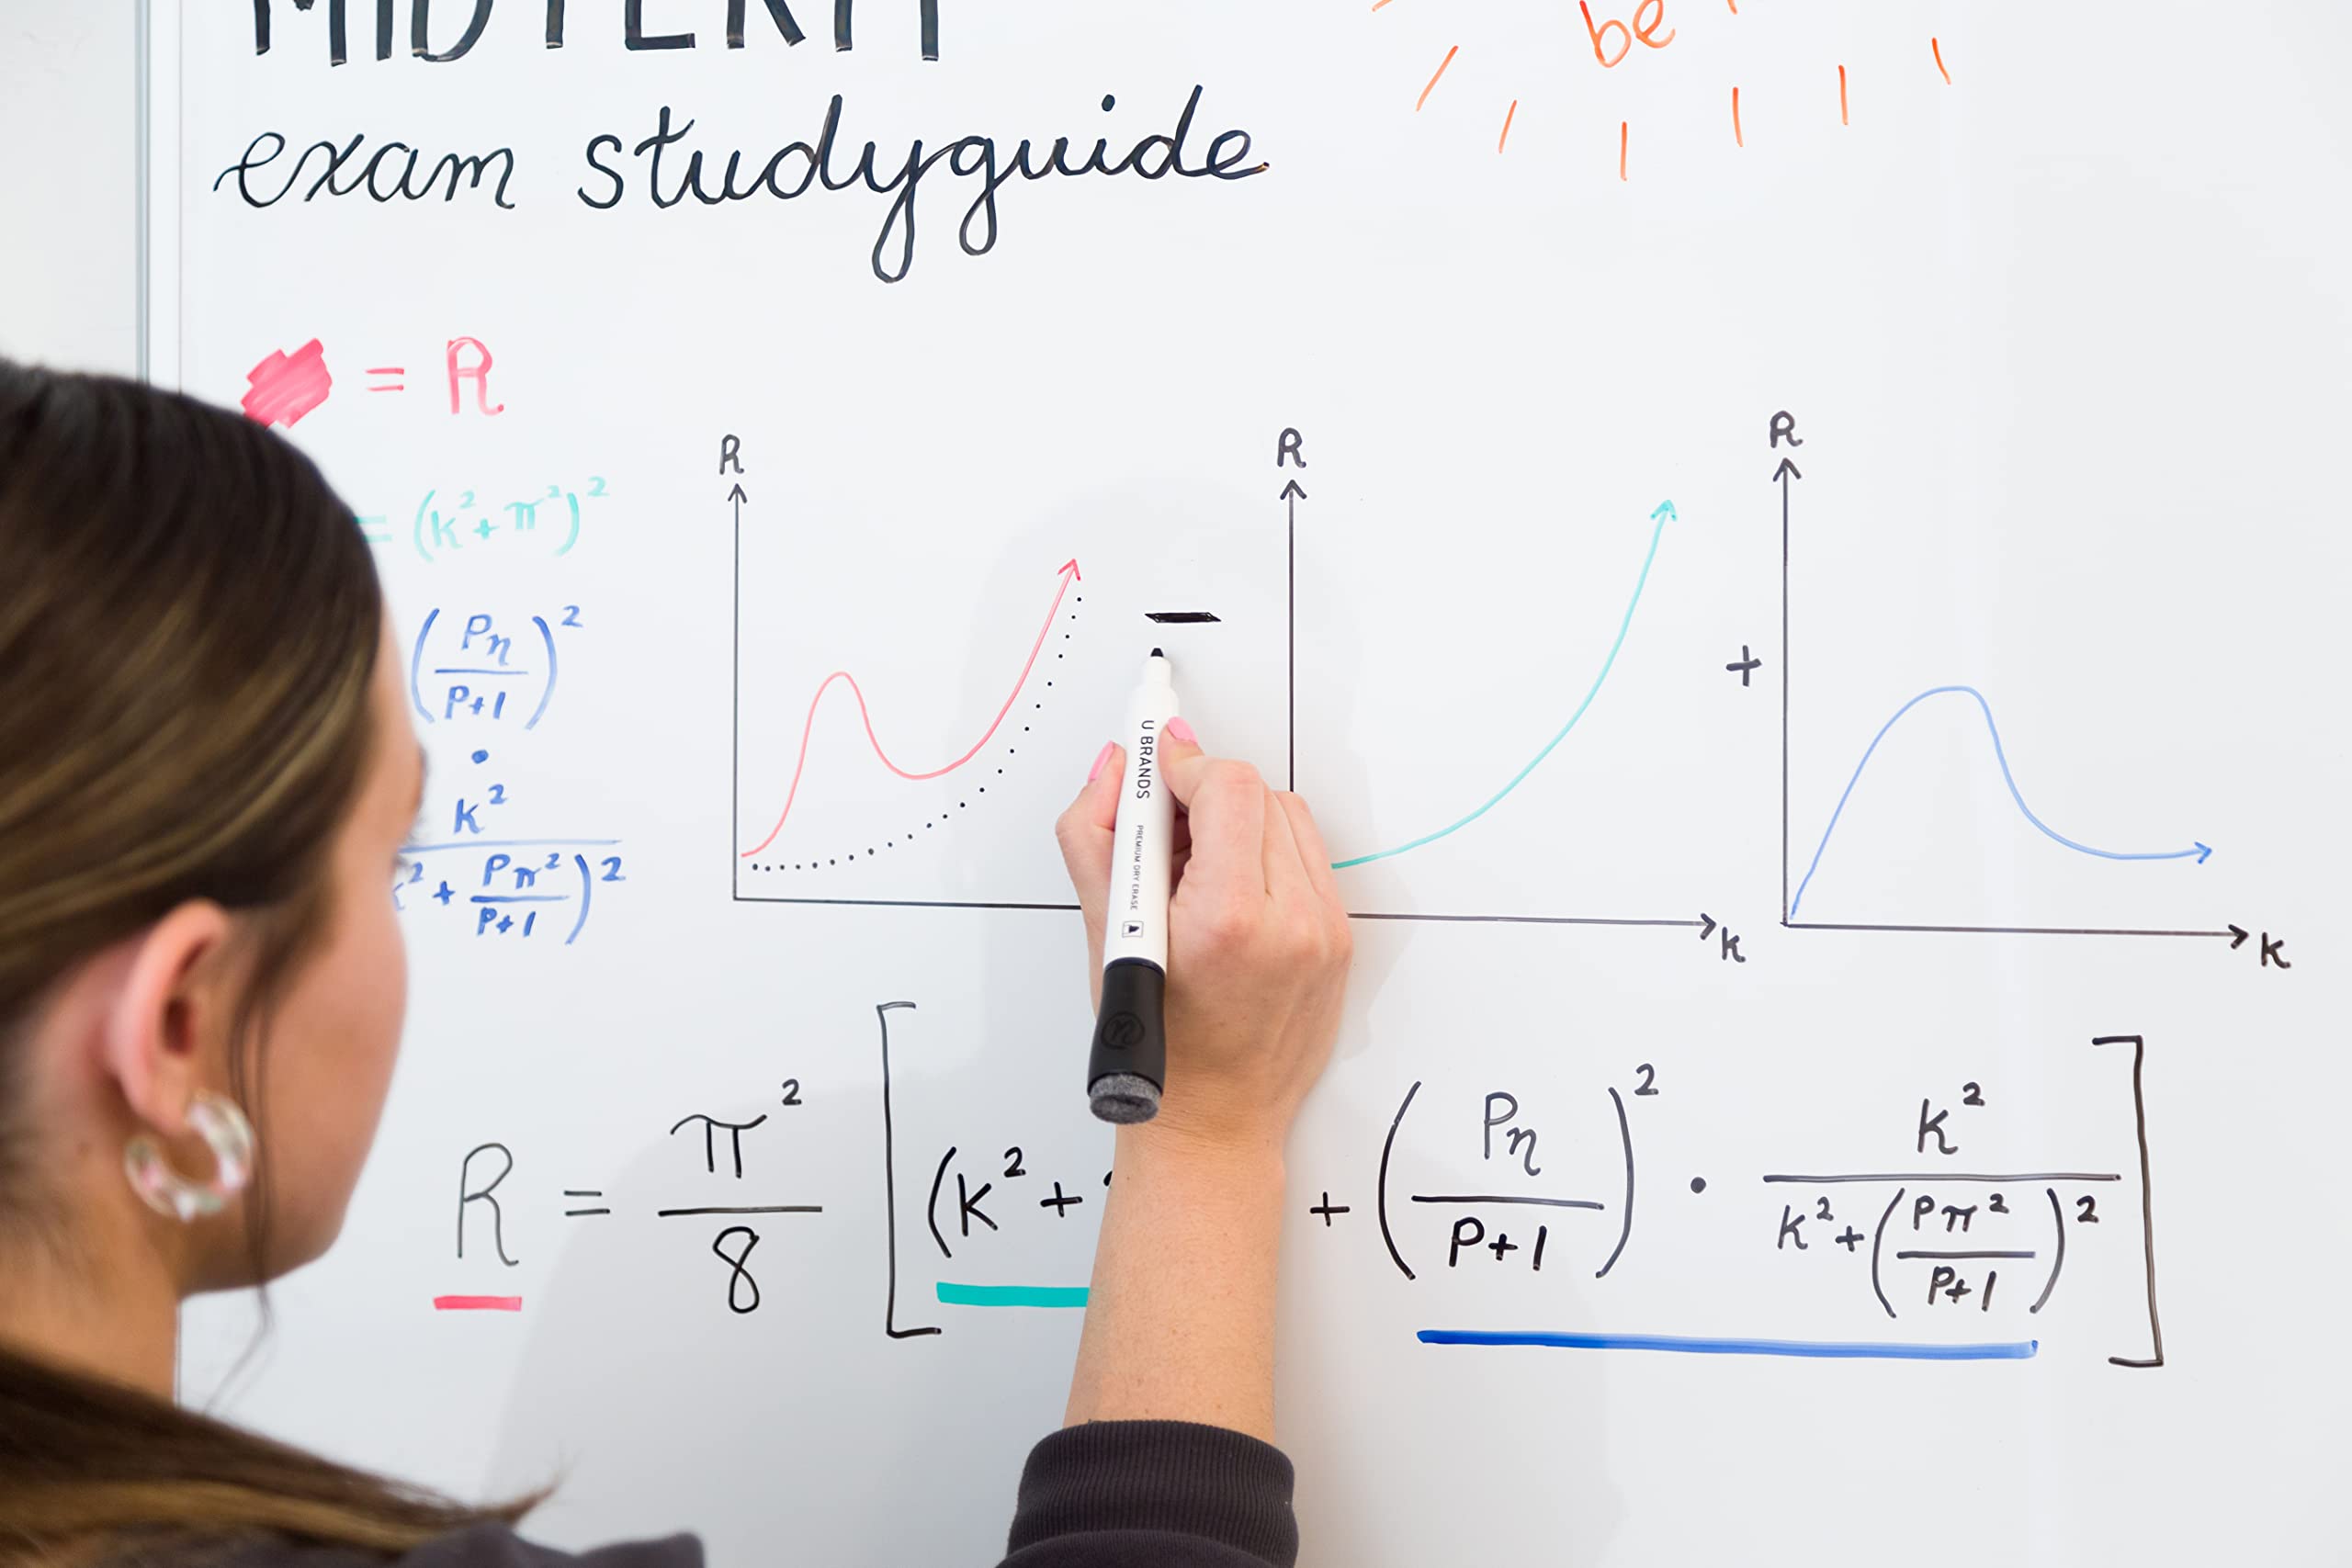 MIDTERM
be
exam studyguide
= R
= (k²+π²)²
(Pη/P+1)²
•
k²
k²+(Pπ²/P+1)²
R
R
R
+
k
k
U BRANDS
PREMIUM DRY ERASE
R = π²/8 [(k²+ + (Pη/P+1)² • k²/k²+(Pπ²/P+1)²]